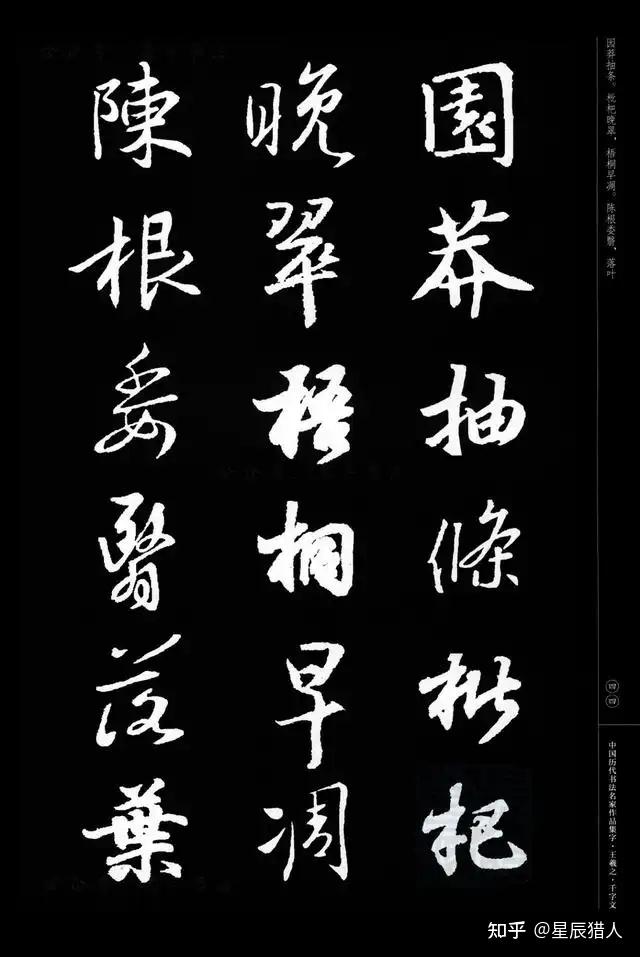 園莽抽條枇杷
晚翠梧桐早凋
陳根委翳落葉
园莽抽条。枇杷晚翠，梧桐早凋。陈根委翳，落叶
四四
中国历代书法名家作品集字·王羲之·千字文
知乎 @星辰猎人